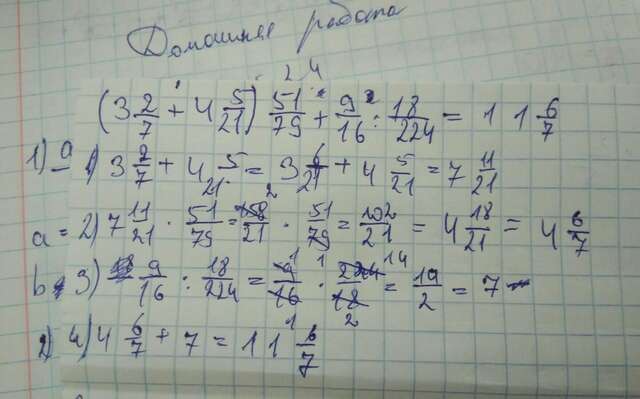 Домашняя работа
2 4
(3 2/7 + 4 5/21) 51/79 + 9/16 : 18/224 = 11 6/7
1) 3 2/7 + 4 5/21 = 3 6/21 + 4 5/21 = 7 11/21
a = 2) 7 11/21 · 51/79 = 158/21 · 51/79 = 102/21 = 4 18/21 = 4 6/7
b 3) 9/16 : 18/224 = 9/16 · 224/18 = 14/2 = 7
4) 4 6/7 + 7 = 11 6/7